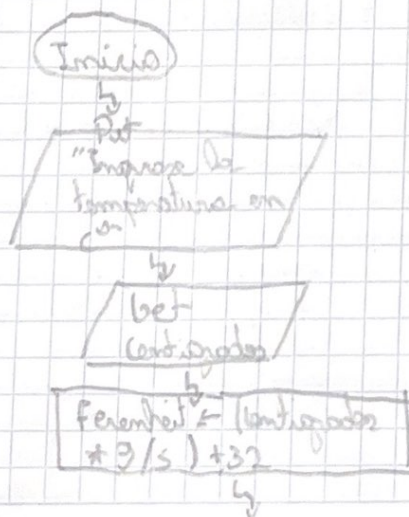 Inicio
Put
"Ingrese la
temperatura en
Get
Centigrados
Ferenheit ← (Centigrados
* 9/5) + 32